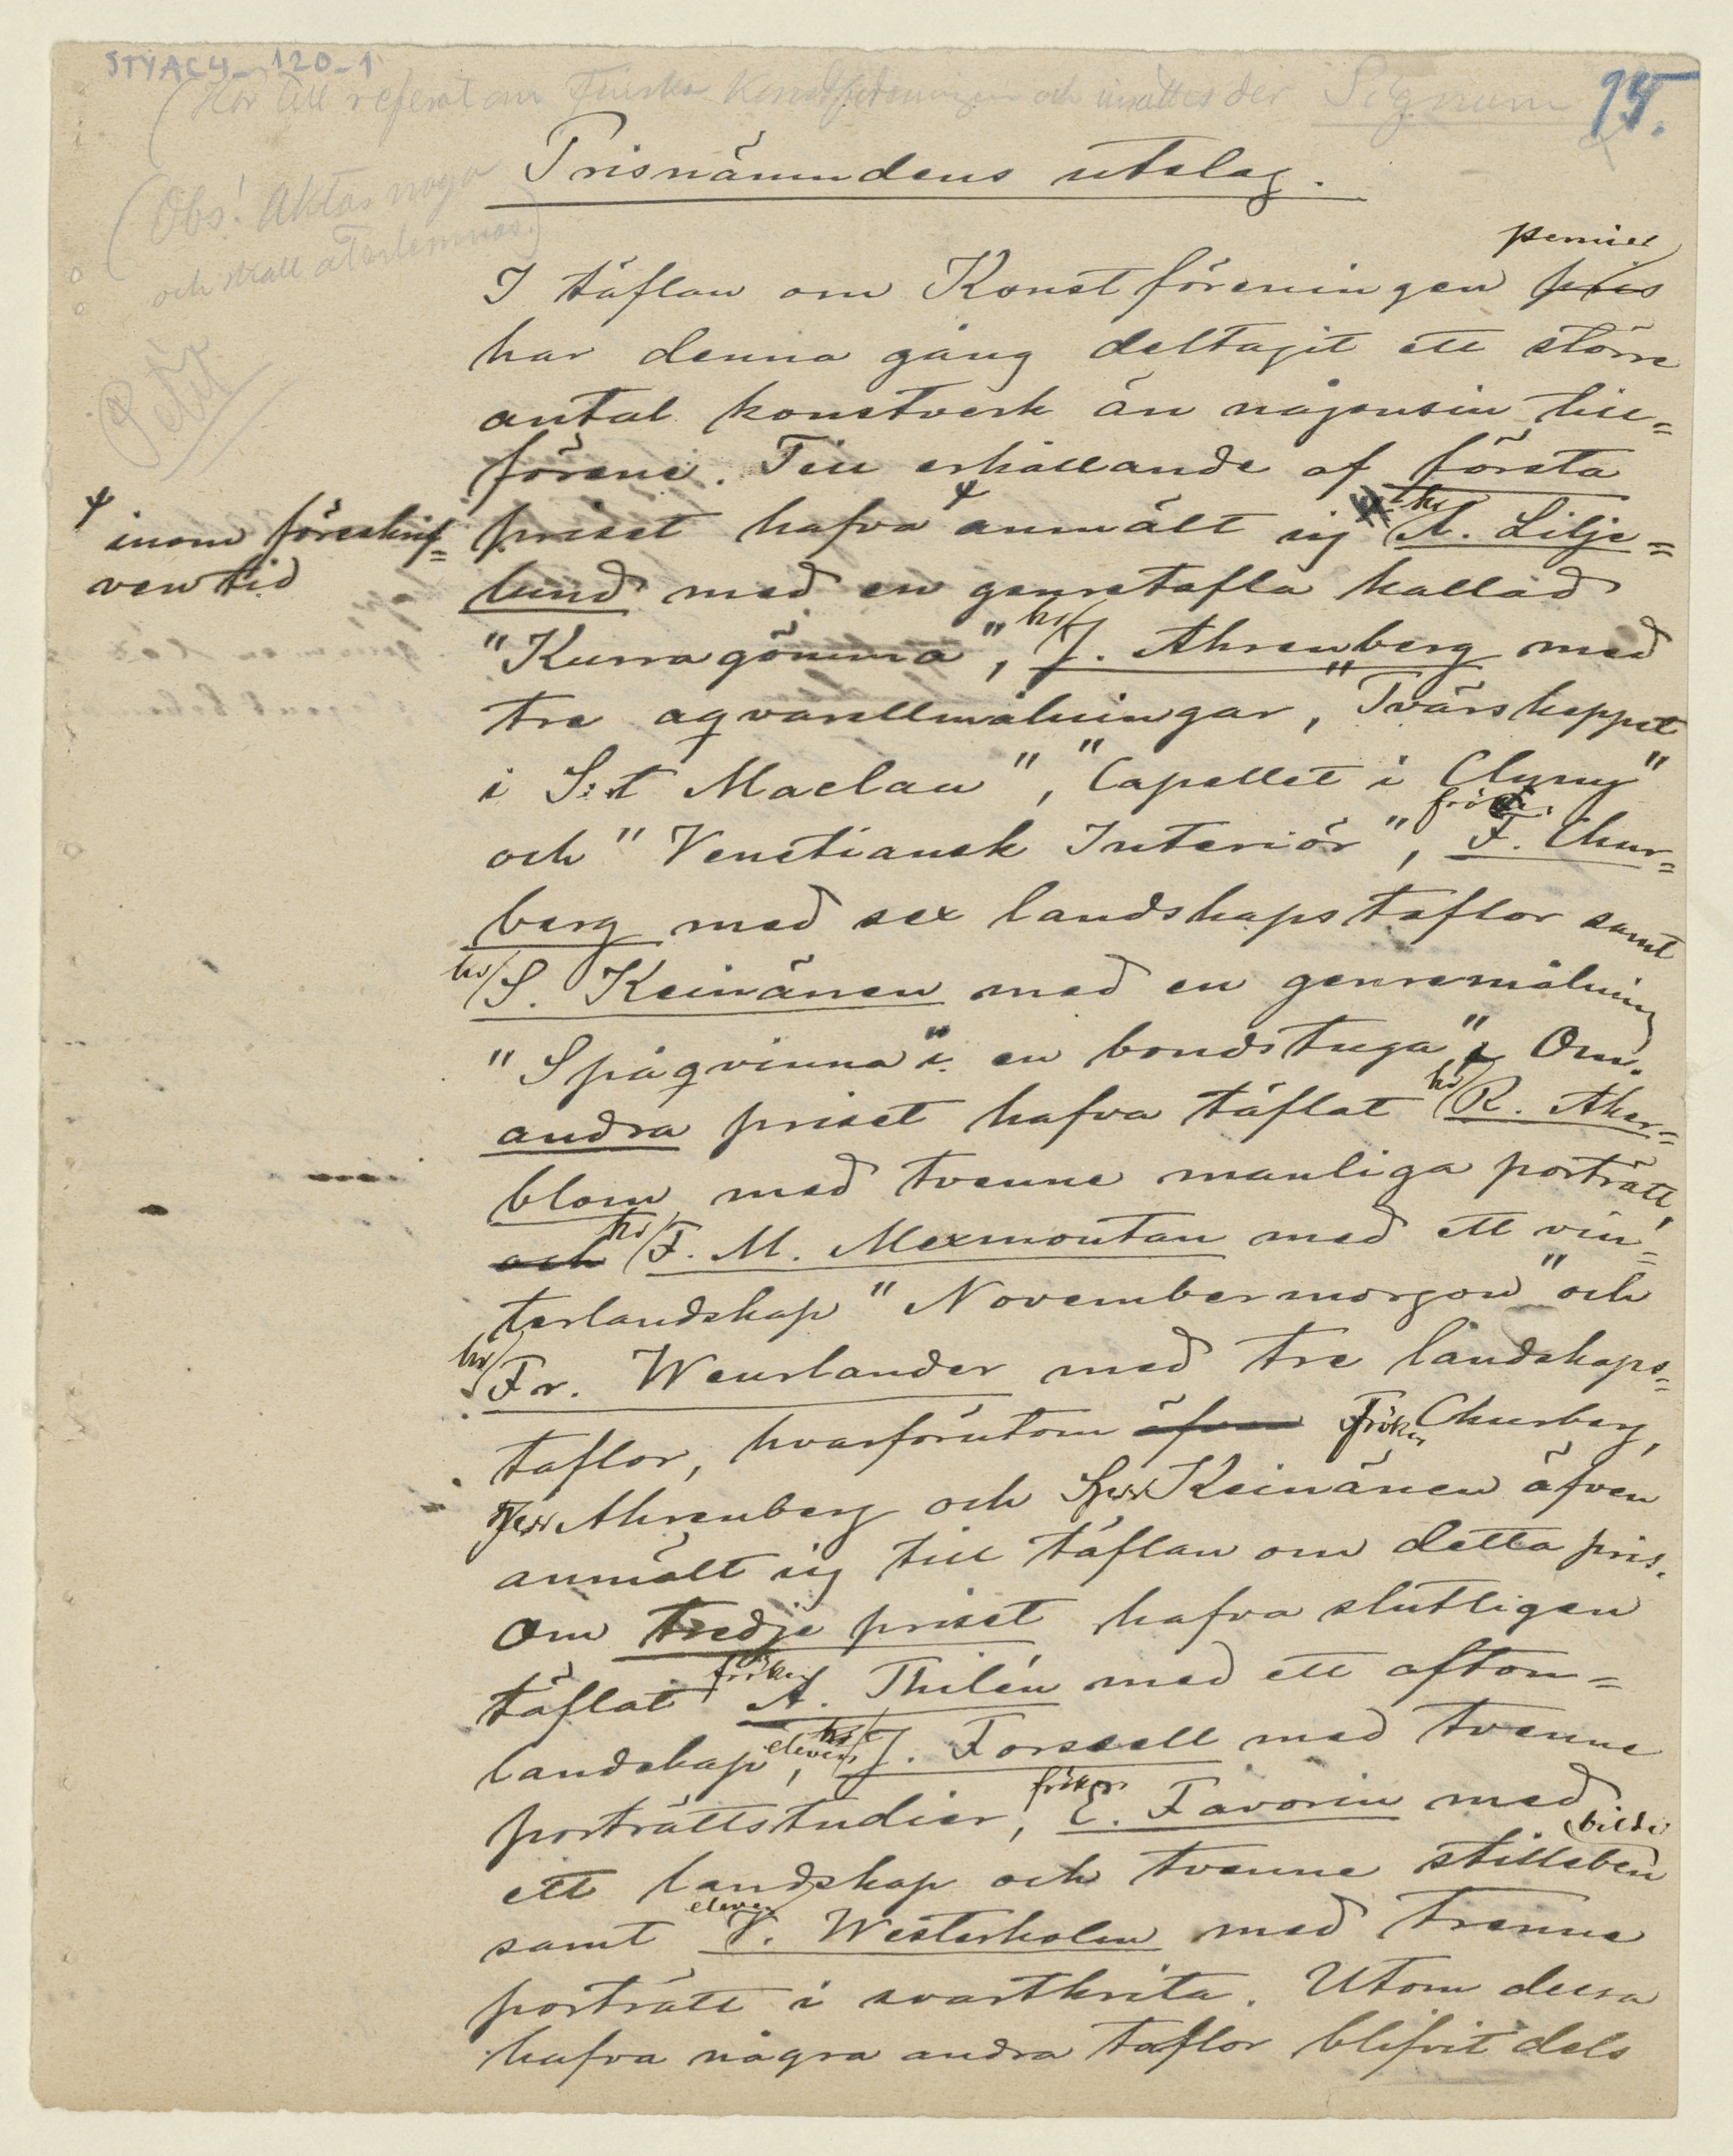 STYACY_120_1
(Hör till referat om Finska Konstföreningen och insättes der Signum
15.
(Obs! Aktas noga
och skall återlemnas.)
Petit
Prisnämndens utslag.
premier
I täflan om Konstföreningen pris
har denna gång deltagit ett större
antal konstverk än någonsin till=
förene. Till erhållande af första
ψ inom föreskrif=
ven tid
priset hafva ψ anmält sig hr A. Lilje=
lund med en genretafla kallad
"Kurragömma", hr J. Ahrenberg med
tre aqvarellmålningar, "Tvärskeppet
i S:t Maclau", "Capellet i Cluny"
och "Venetiansk Interiör", fröken F. Chur=
berg med sex landskapstaflor samt
hr S. Keinänen med en genremålning
"Spåqvinna i en bondstuga". Om
andra priset hafva täflat hr R. Aker=
blom med tvenne manliga porträtt,
och hr F. M. Mexmontan med ett vin=
terlandskap "Novembermorgon" och
hr Fr. Weurlander med tre landskaps=
taflor, hvarförutom äfven Fröken Churberg,
Herr Ahrenberg och Herr Keinänen äfven
anmält sig till täflan om detta pris.
Om tredje priset hafva slutligen
täflat fröken A. Thilén med ett afton=
landskap, eleven hr J. Forssell med tvenne
porträttstudier, fröken E. Favorin med
ett landskap och tvenne stilleben bilder
samt eleven V. Westerholm med trenne
porträtt i svartkrita. Utom dessa
hafva några andra taflor blifvit dels